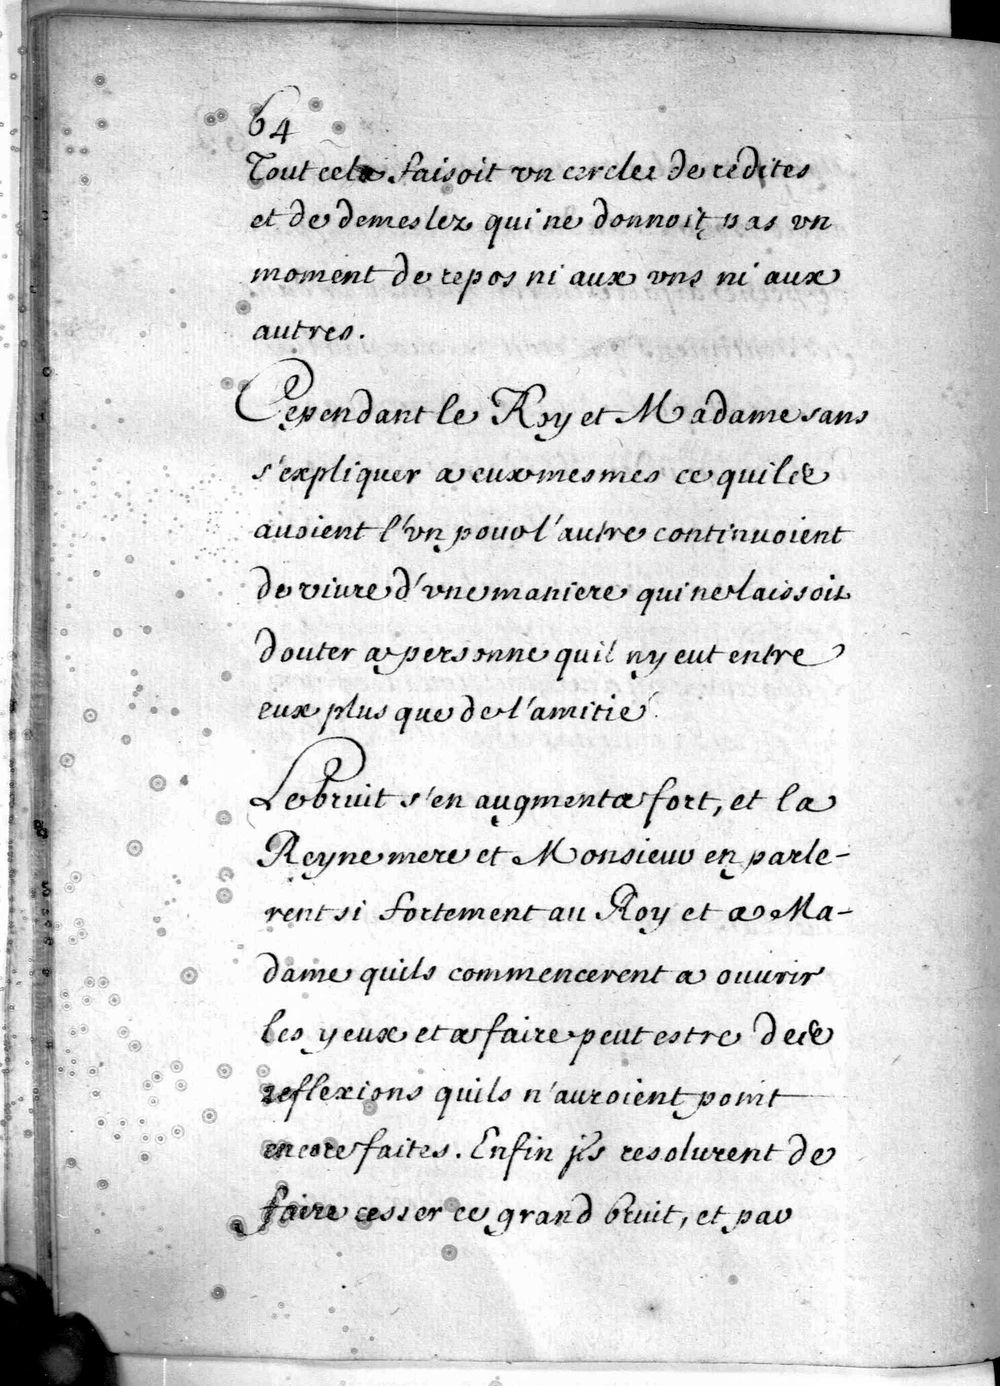 64
Tout cela faisoit vn cercle de redites
et de demeslez qui ne donnoit pas vn
moment de repos ni aux vns ni aux
autres.
Cependant le Roy et Madame sans
s'expliquer a eux mesmes ce quils
auoient l'vn pour l'autre continuoient
de viure d'vne maniere qui ne laissoit
douter a personne quil ny eut entre
eux plus que de l'amitié.
Le bruit s'en augmenta fort, et la
Reyne mere et Monsieur en parle-
rent si fortement au Roy et a Ma-
dame quils commencerent a ouurir
les yeux et a faire peut estre des
reflexions quils n'auroient point
encore faites. Enfin ils resolurent de
faire cesser ce grand bruit, et par